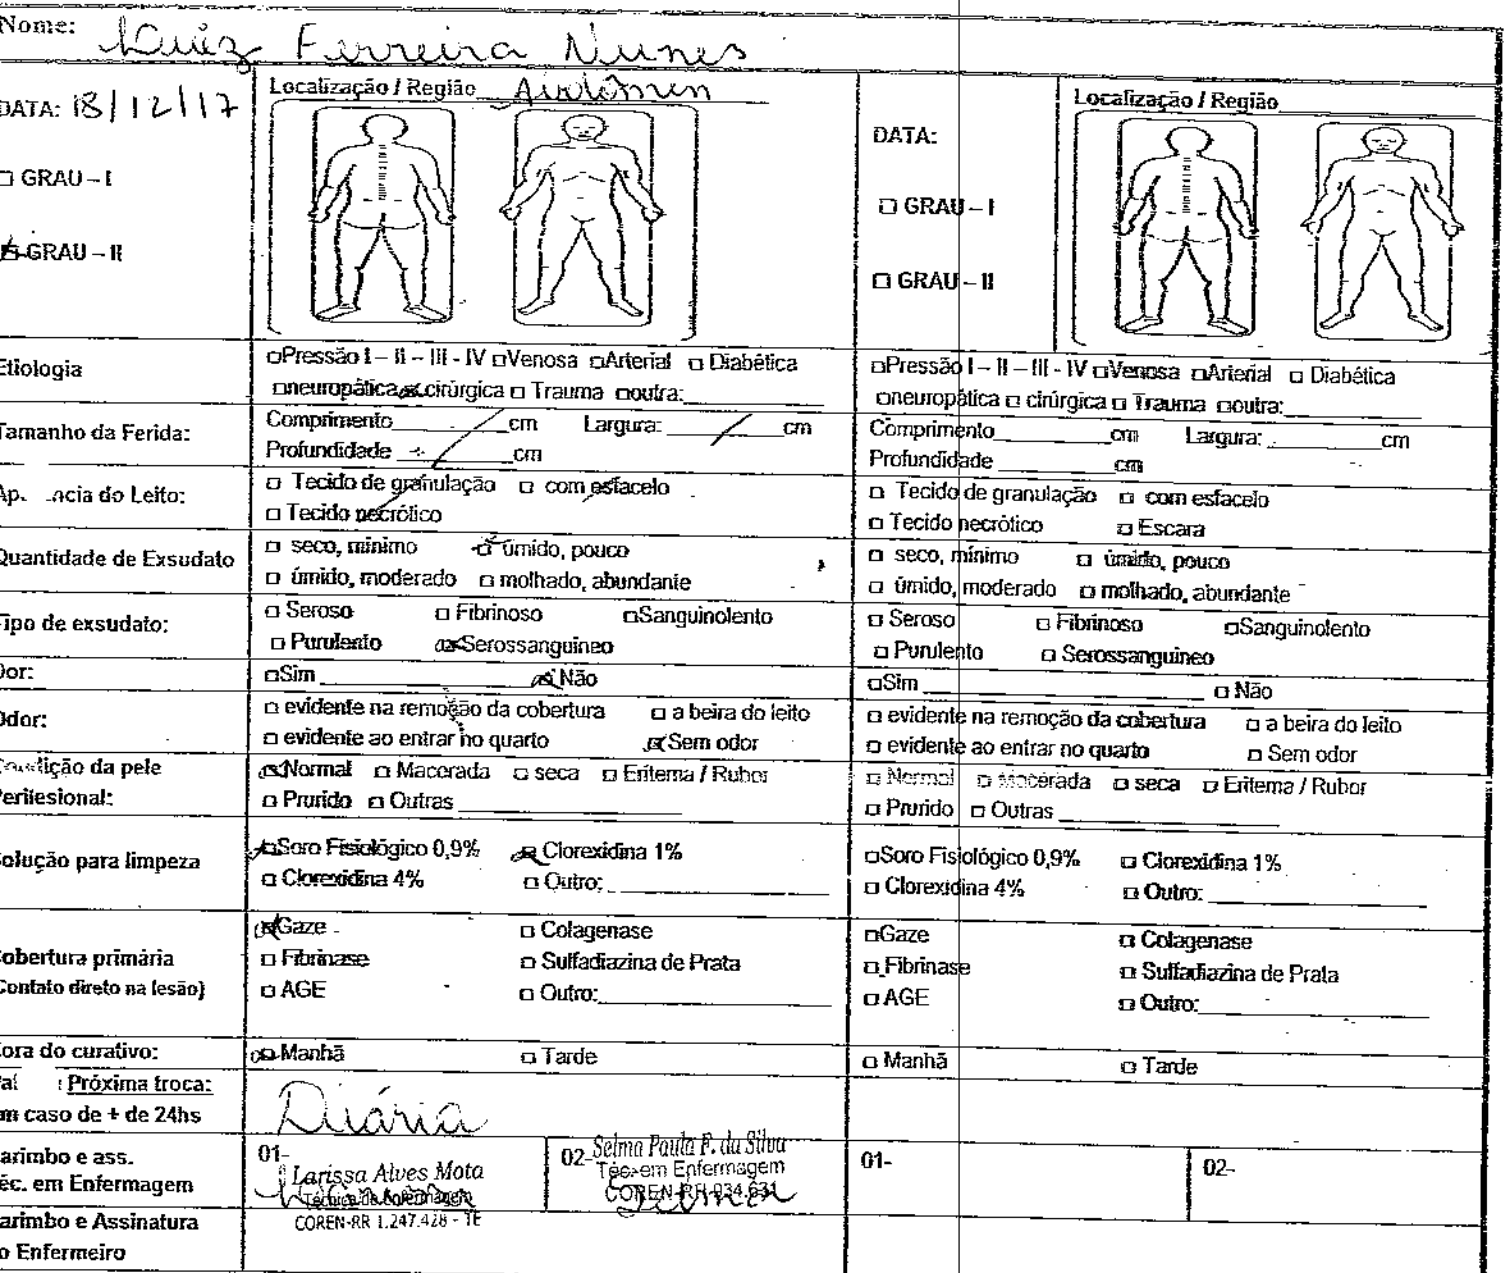 Nome: Luiz Ferreira Nunes
DATA: 18/12/17
Localização / Região Abdômen
□ GRAU – I
☒ GRAU – II
DATA:
Localização / Região
□ GRAU – I
□ GRAU – II
Etiologia
□Pressão I – II – III - IV □Venosa □Arterial □ Diabética
□neuropática ☒ cirúrgica □ Trauma □outra:
□Pressão I – II – III - IV □Venosa □Arterial □ Diabética
□neuropática □ cirúrgica □ Trauma □outra:
Tamanho da Ferida:
Comprimento cm Largura: cm
Profundidade cm
Comprimento cm Largura: cm
Profundidade cm
do Leito:
□ Tecido de granulação □ com esfacelo
□ Tecido necrótico
□ Tecido de granulação □ com esfacelo
□ Tecido necrótico □ Escara
Quantidade de Exsudato
□ seco, mínimo ☒ úmido, pouco
□ úmido, moderado □ molhado, abundante
□ seco, mínimo □ úmido, pouco
□ úmido, moderado □ molhado, abundante
Tipo de exsudato:
□ Seroso □ Fibrinoso □Sanguinolento
□ Purulento ☒Serossanguineo
□ Seroso □ Fibrinoso □Sanguinolento
□ Purulento □ Serossanguineo
Dor:
□Sim ☒ Não
□Sim □ Não
Odor:
□ evidente na remoção da cobertura □ a beira do leito
□ evidente ao entrar no quarto ☒ Sem odor
□ evidente na remoção da cobertura □ a beira do leito
□ evidente ao entrar no quarto □ Sem odor
Condição da pele
Perilesional:
☒Normal □ Macerada □ seca □ Eritema / Rubor
□ Prurido □ Outras
□ Normal □ Macerada □ seca □ Eritema / Rubor
□ Prurido □ Outras
Solução para limpeza
☒Soro Fisiológico 0,9% ☒ Clorexidina 1%
□ Clorexidina 4% □ Outro:
□Soro Fisiológico 0,9% □ Clorexidina 1%
□ Clorexidina 4% □ Outro:
Cobertura primária
(Contato direto na lesão)
☒Gaze □ Colagenase
□ Fibrinase □ Sulfadiazina de Prata
□ AGE □ Outro:
□Gaze □ Colagenase
□Fibrinase □ Sulfadiazina de Prata
□ AGE □ Outro:
Hora do curativo:
☒ Manhã □ Tarde
□ Manhã □ Tarde
Próxima troca:
em caso de + de 24hs
Diária
Carimbo e ass.
Téc. em Enfermagem
01-
Larissa Alves Mota
Técnica de Enfermagem
COREN-RR 1.247.428 - TE
02- Selma Paula F. da Silva
Téc. em Enfermagem
COREN-RR 934.631
Selma
01-
02-
Carimbo e Assinatura
do Enfermeiro